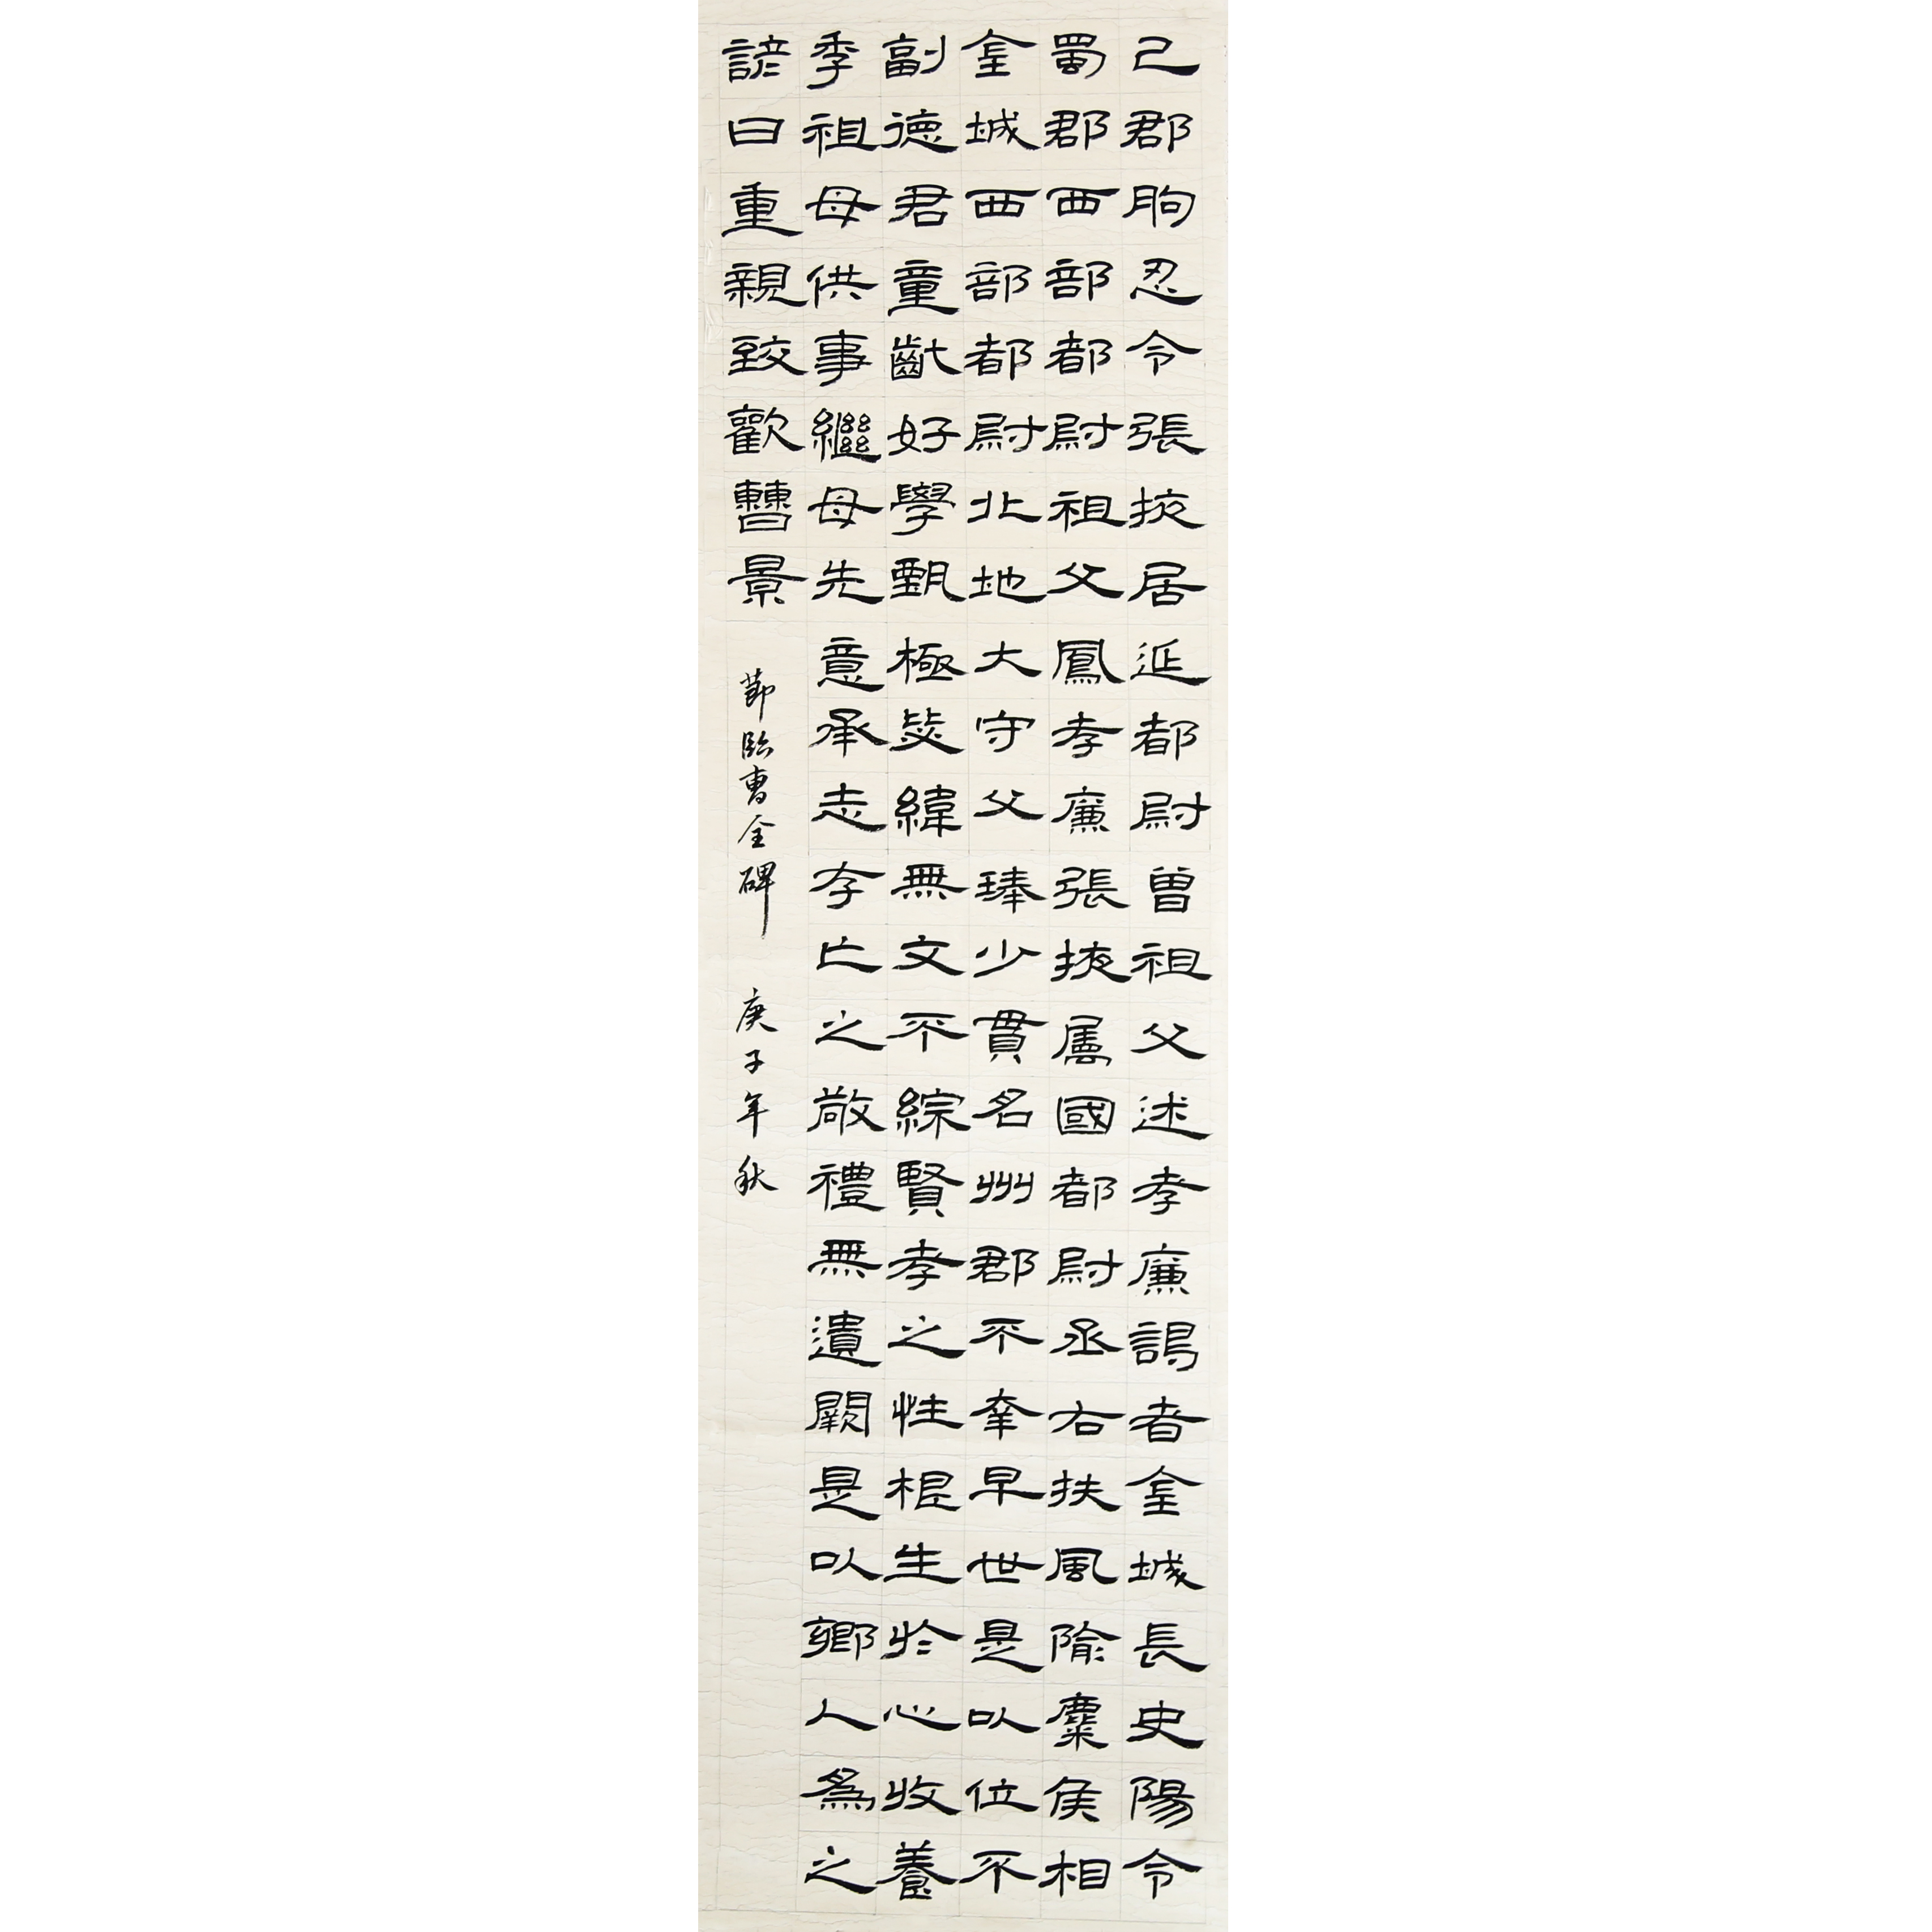 己郡朐忍令張掖居延都尉曾祖父述孝廉謁者金城長史陽令
蜀郡西部都尉祖父鳳孝廉張掖屬國都尉丞右扶風隃麋侯相
金城西部都尉北地大守父琫少貫名州郡不幸早世是以位不
副德君童齔好學甄極毖緯無文不綜賢孝之性根生於心收養
季祖母供事繼母先意承志存亡之敬禮無遺闕是以鄉人為之
諺曰重親致歡曹景
節臨曹全碑 庚子年秋